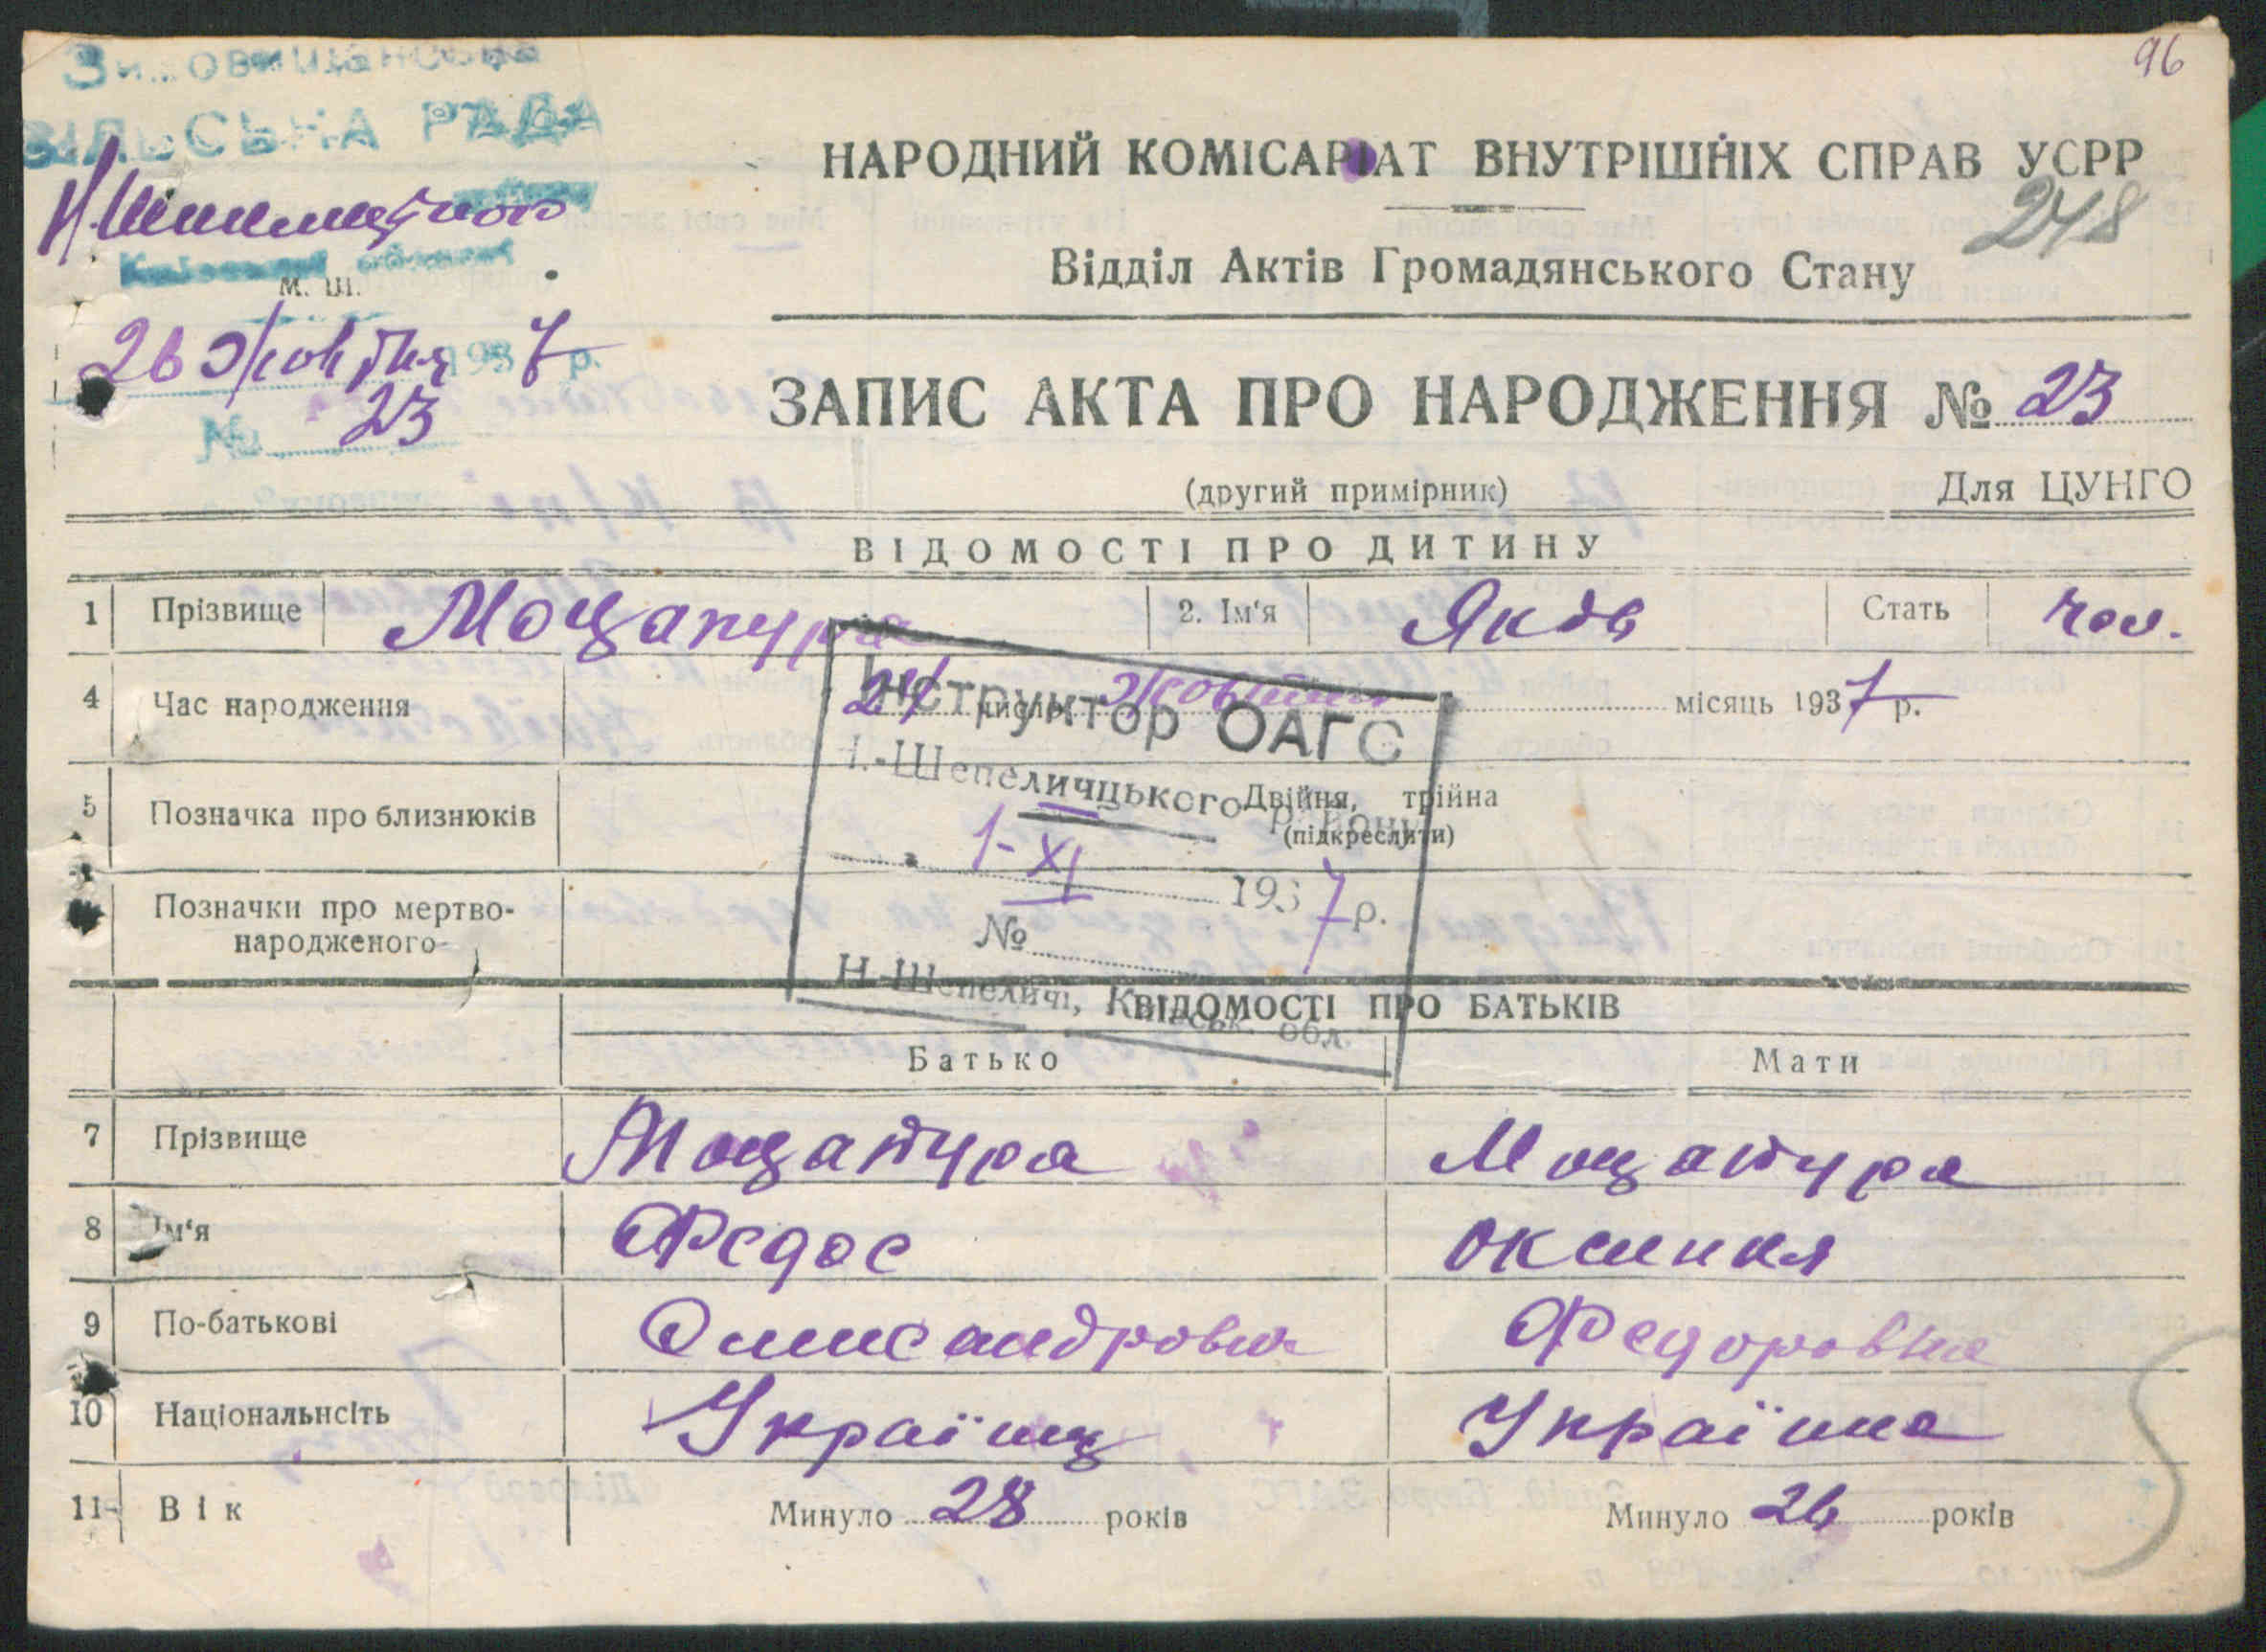 96
 СІЛЬСЬКА РАДА
М. Ш.
26 Жовтня 1937 р.
№ 23
НАРОДНИЙ КОМІСАРІАТ ВНУТРІШНІХ СПРАВ УСРР
248
Відділ Актів Громадянського Стану
ЗАПИС АКТА ПРО НАРОДЖЕННЯ № 23
(другий примірник) Для ЦУНГО
ВІДОМОСТІ ПРО ДИТИНУ
1 Прізвище Моцапура 2. Ім'я Яков Стать чол.
4 Час народження 24 число Жовтня місяць 1937 р.
Інструктор ОАГС
Н.-Шепеличцького району
5 Позначка про близнюків Двійня, трійна
(підкреслити)
1-XI 1937 р.
№
Позначки про мертво-
народженого
Н-Шепеличі, Київськ. обл.
ВІДОМОСТІ ПРО БАТЬКІВ
Батько Мати
7 Прізвище Моцапура Моцапура
8 Ім'я Федос
9 По-батькові Федоровна
10 Національнсіть Українц Українка
11 Вік Минуло 28 років Минуло 26 років